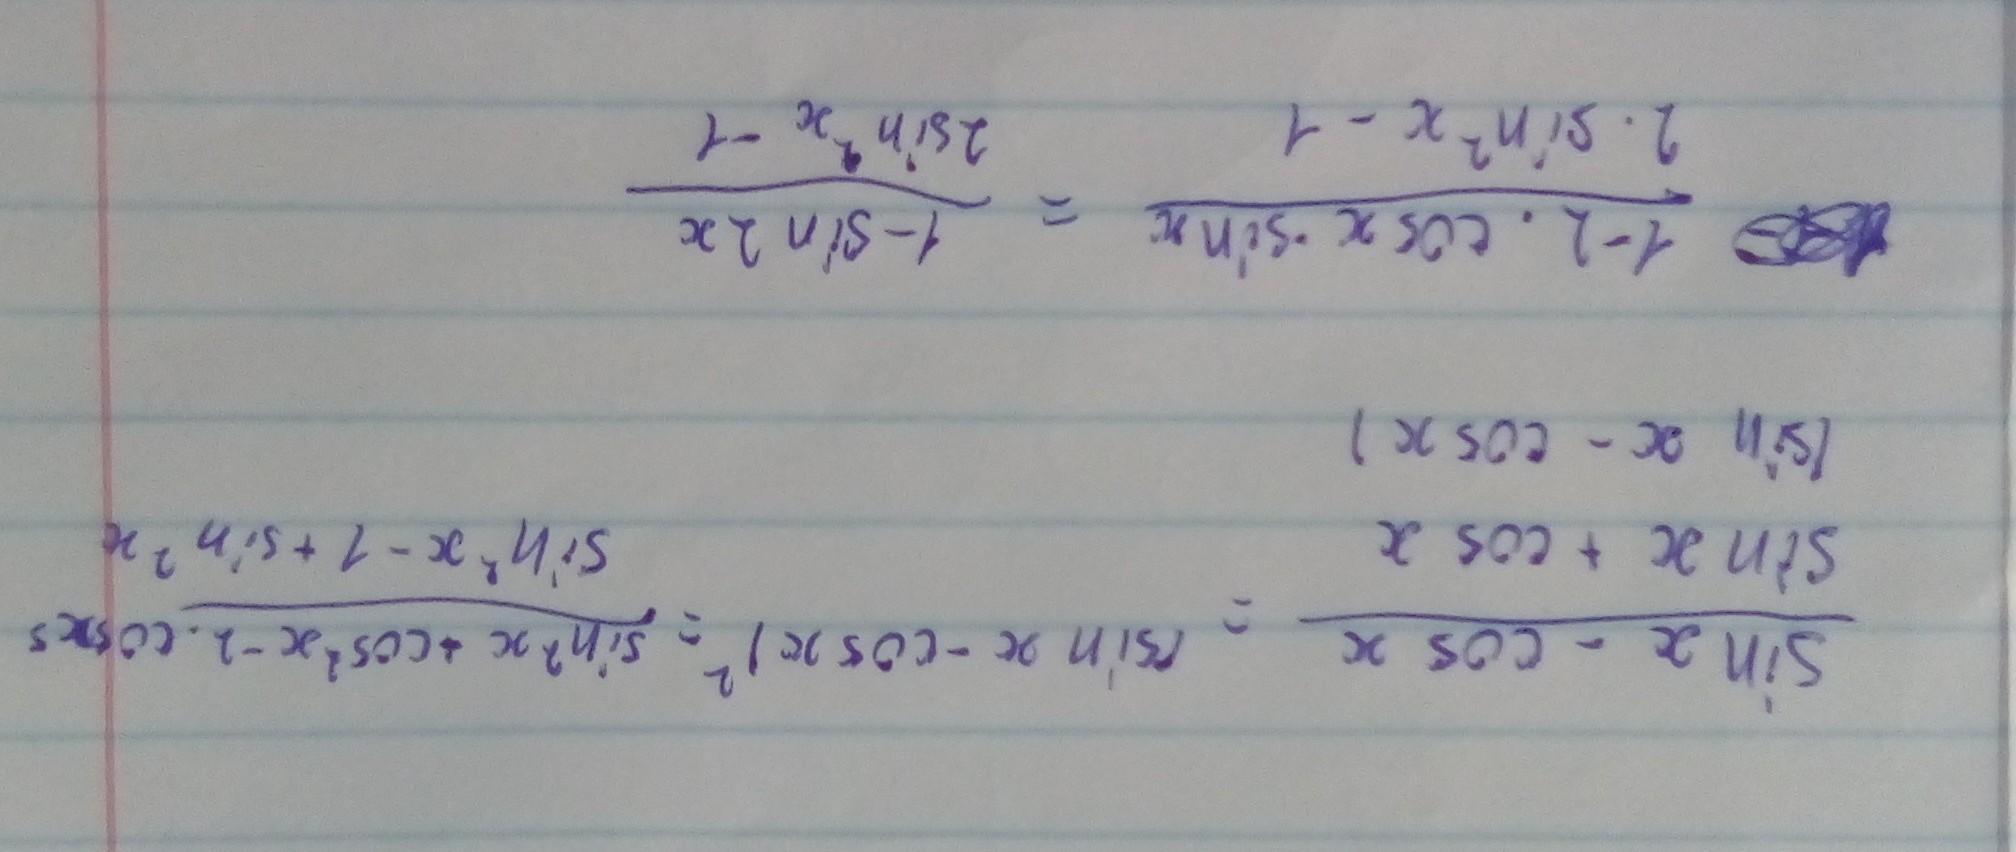 sin x - cos x / sin x + cos x = (sin x - cos x)² = sin²x + cos²x - 2 · cosxs / sin²x - 1 + sin²x
(sin x - cos x)
1 - 2 · cos x · sin x / 2 · sin²x - 1 = 1 - sin 2x / 2 sin²x - 1